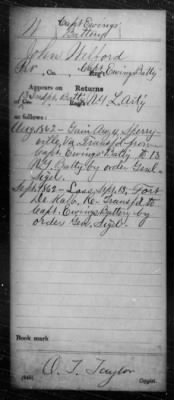 W Capt Ewings'
Battery
John Welford
Pvt, Co. , Capt. Ewings Batty Reg't
Appears on Returns
13 Indpt. Batty N.Y. L. Arty
as follows:
Aug. 1862 - Gain Aug. Sperry-
ville, Va. Transfd from
Capt. Ewings' Batty to 13
N.Y. Batty by order Genl.
Sigel.
Sept. 1862 - Loss, Sept. 13, Fort
De Kalb. Re-Transfd to
Capt. Ewings' Battery by
order Gen. Sigel.
Book mark
O. T. Taylor
(546) Copyist.